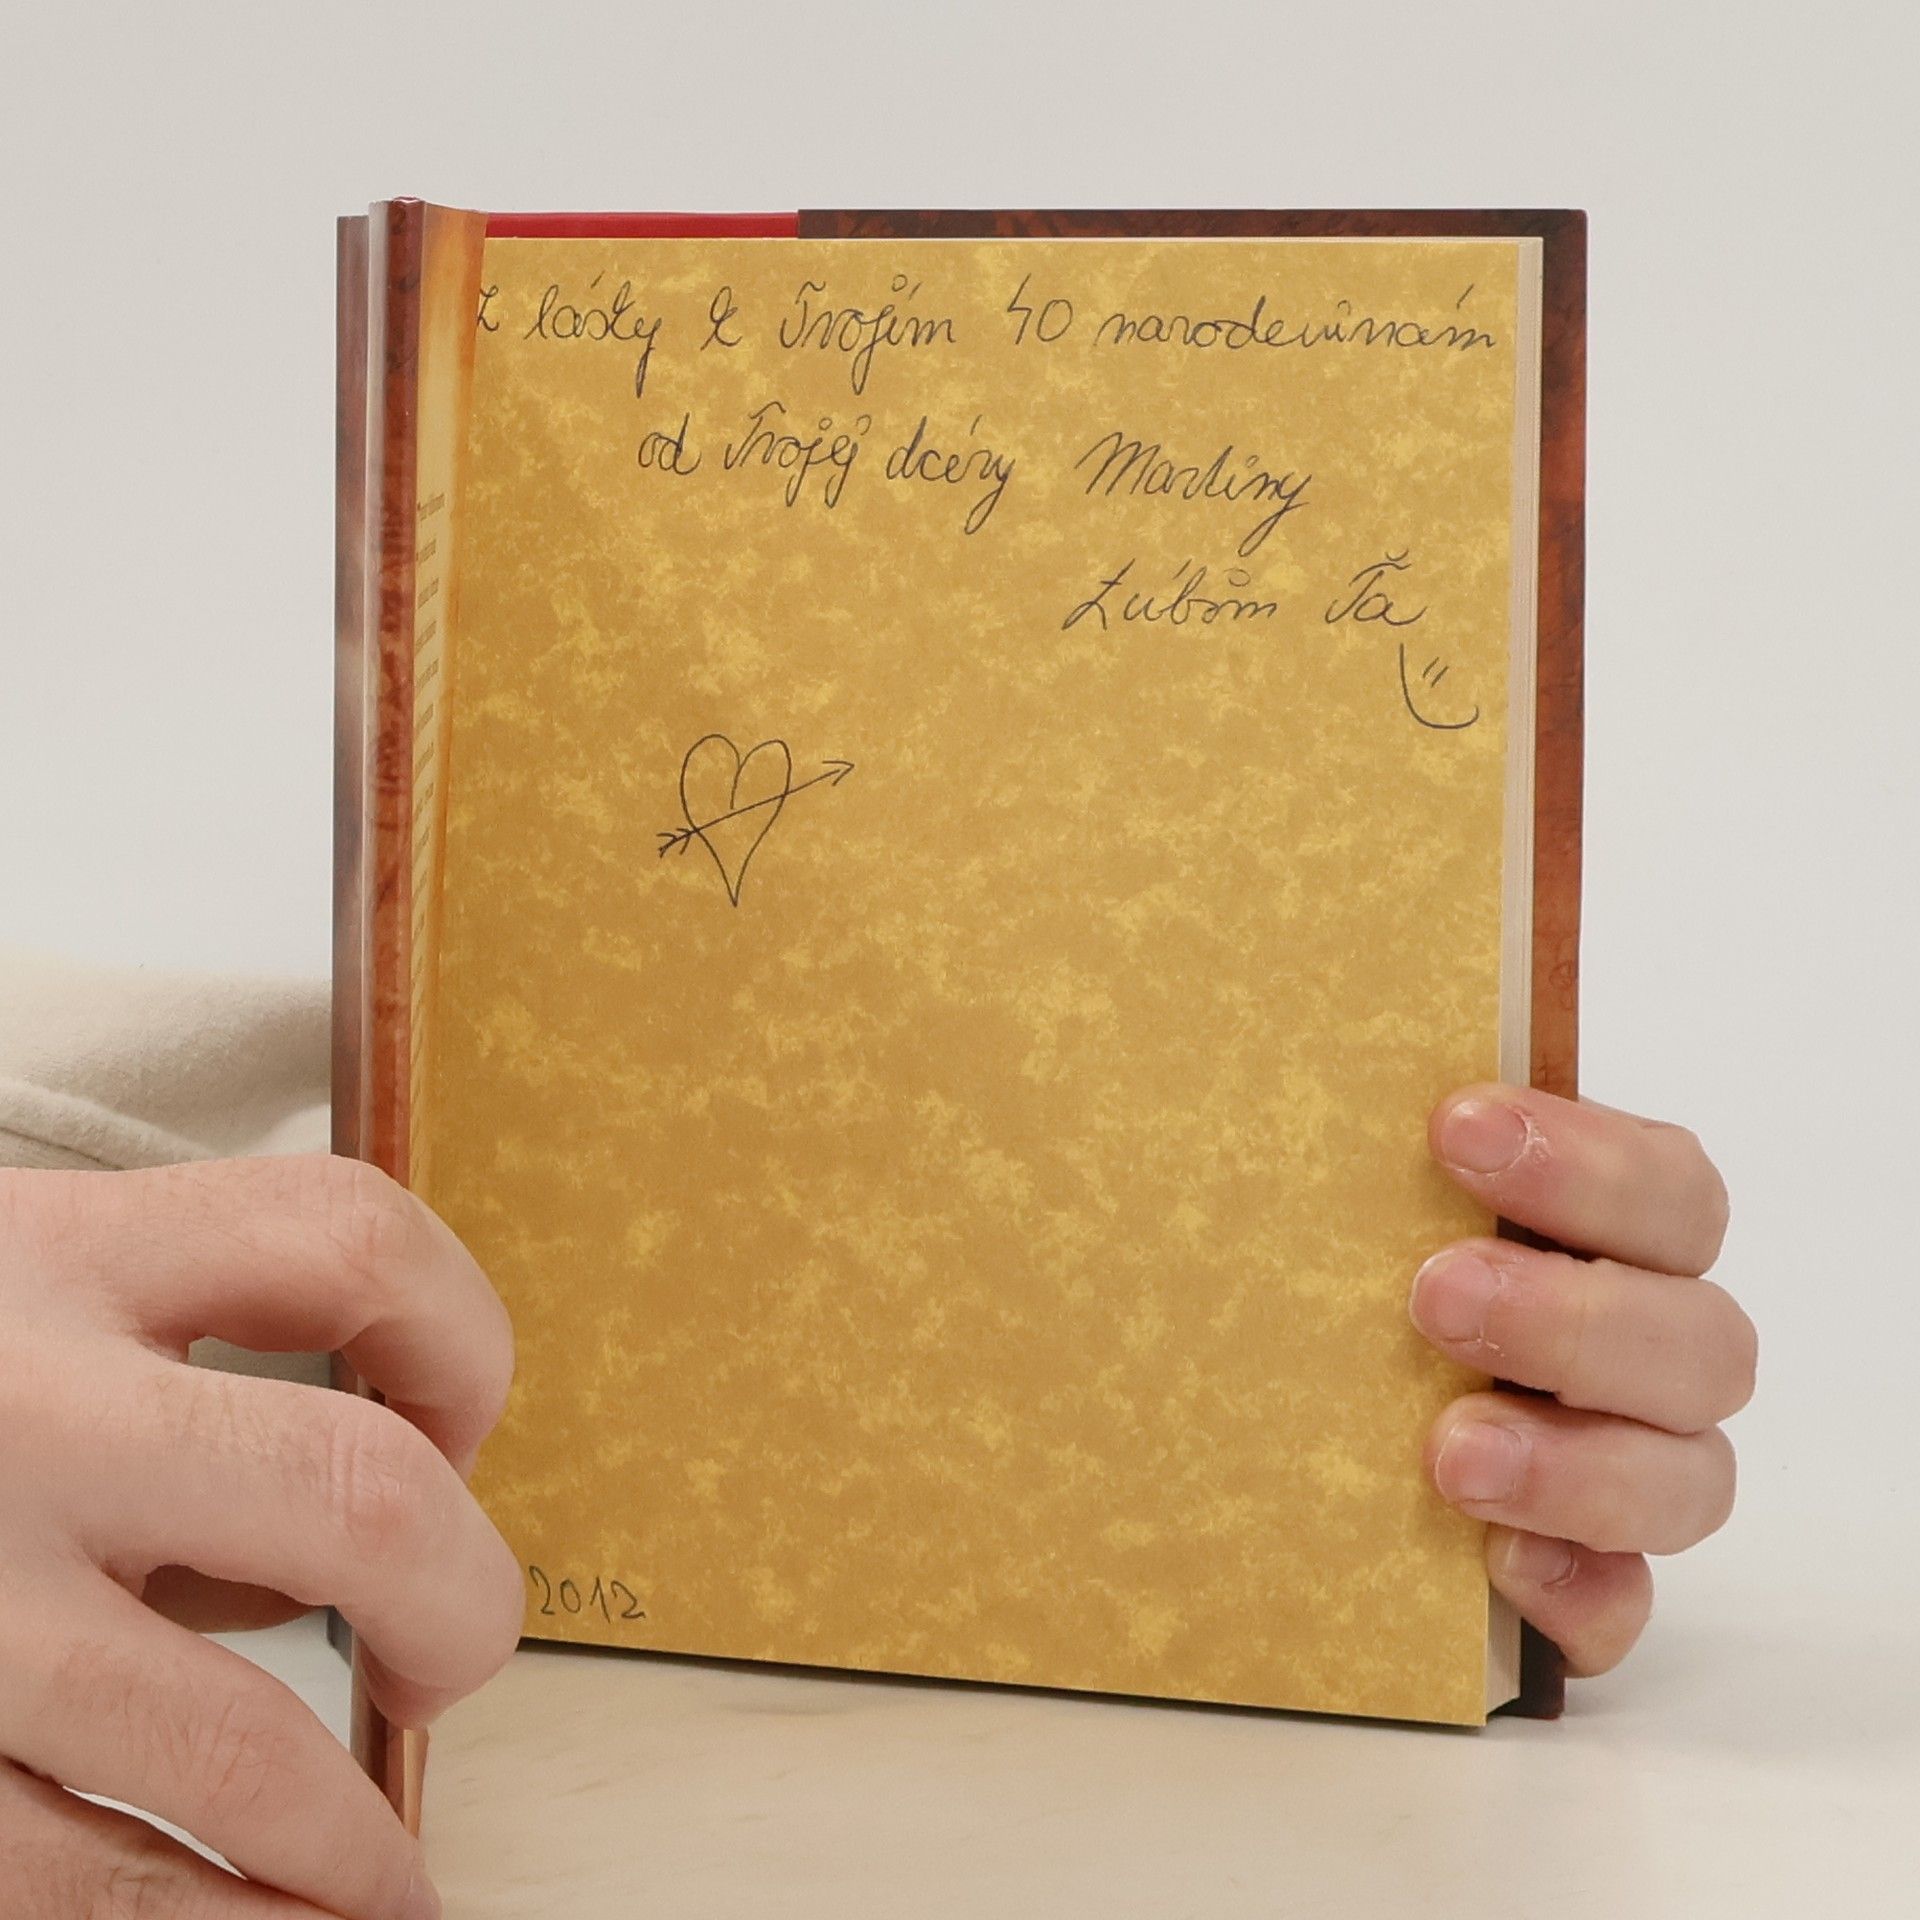 Z lásky k Tvojím 40 narodeninám
od Tvojej dcéry Martiny
Ľúbim Ťa
2012